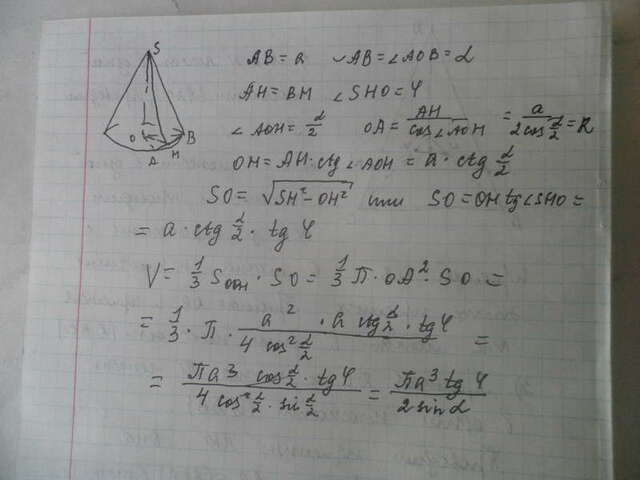 S
O
B
A
H
AB = a ◡AB = ∠AOB = α
AH = BH ∠SHO = φ
∠AOH = α/2 OA = AH/cos∠AOH = a/(2cos α/2) = R
OH = AH · ctg ∠AOH = a · ctg α/2
SO = √(SH² - OH²) или SO = OH tg∠SHO =
= a · ctg α/2 · tg φ
V = 1/3 Sосн · SO = 1/3 П · OA² · SO =
= 1/3 · П · (a² · a ctg α/2 · tg φ)/(4 cos² α/2) =
= (Пa³ cos α/2 · tg φ)/(4 cos² α/2 · sin α/2) = (Пa³ tg φ)/(2 sin α)